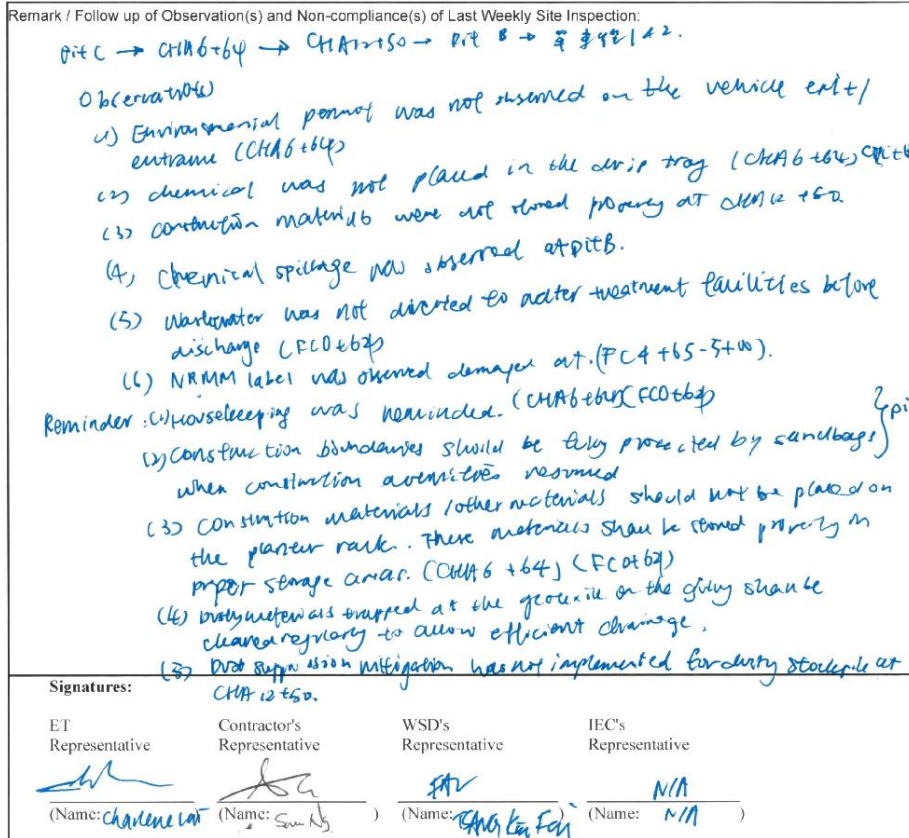 Remark / Follow up of Observation(s) and Non-compliance(s) of Last Weekly Site Inspection:
Pit C → CHA6+64 → CHA12+50 → Pit B → 1 & 2.
Observation(s)
(1) Environmental permit was not observed on the vehicle exit/
entrance (CHA6+64)
(2) chemical was not placed in the drip tray (CHA6+64)
(3) construction materials were not stored properly at CHA12+50.
(4) Chemical spillage was observed at pit B.
(5) wastewater was not diverted to water treatment facilities before
discharge (FC0+62)
(6) NRMM label was observed damaged at. (FC4+65-5+00).
Reminder: (1) Housekeeping was reminded. (CHA6+64)(FC0+62)
(2) Construction boundaries should be fully protected by sandbags } pi
when construction activities resumed
(3) construction materials / other materials should not be placed on
the planter. These materials shall be stored properly in
proper storage areas. (CHA6+64) (FC0+62)
(4) materials trapped at the geotextile on the gully shall be
cleared regularly to allow efficient drainage.
(5) Dust suppression mitigation has not implemented for dusty stockpile at
CHA12+50.
Signatures:
ET Representative
Contractor's Representative
WSD's Representative
IEC's Representative
N/A
(Name: Charlene )
(Name: Sam Ng )
(Name: )
(Name: N/A )